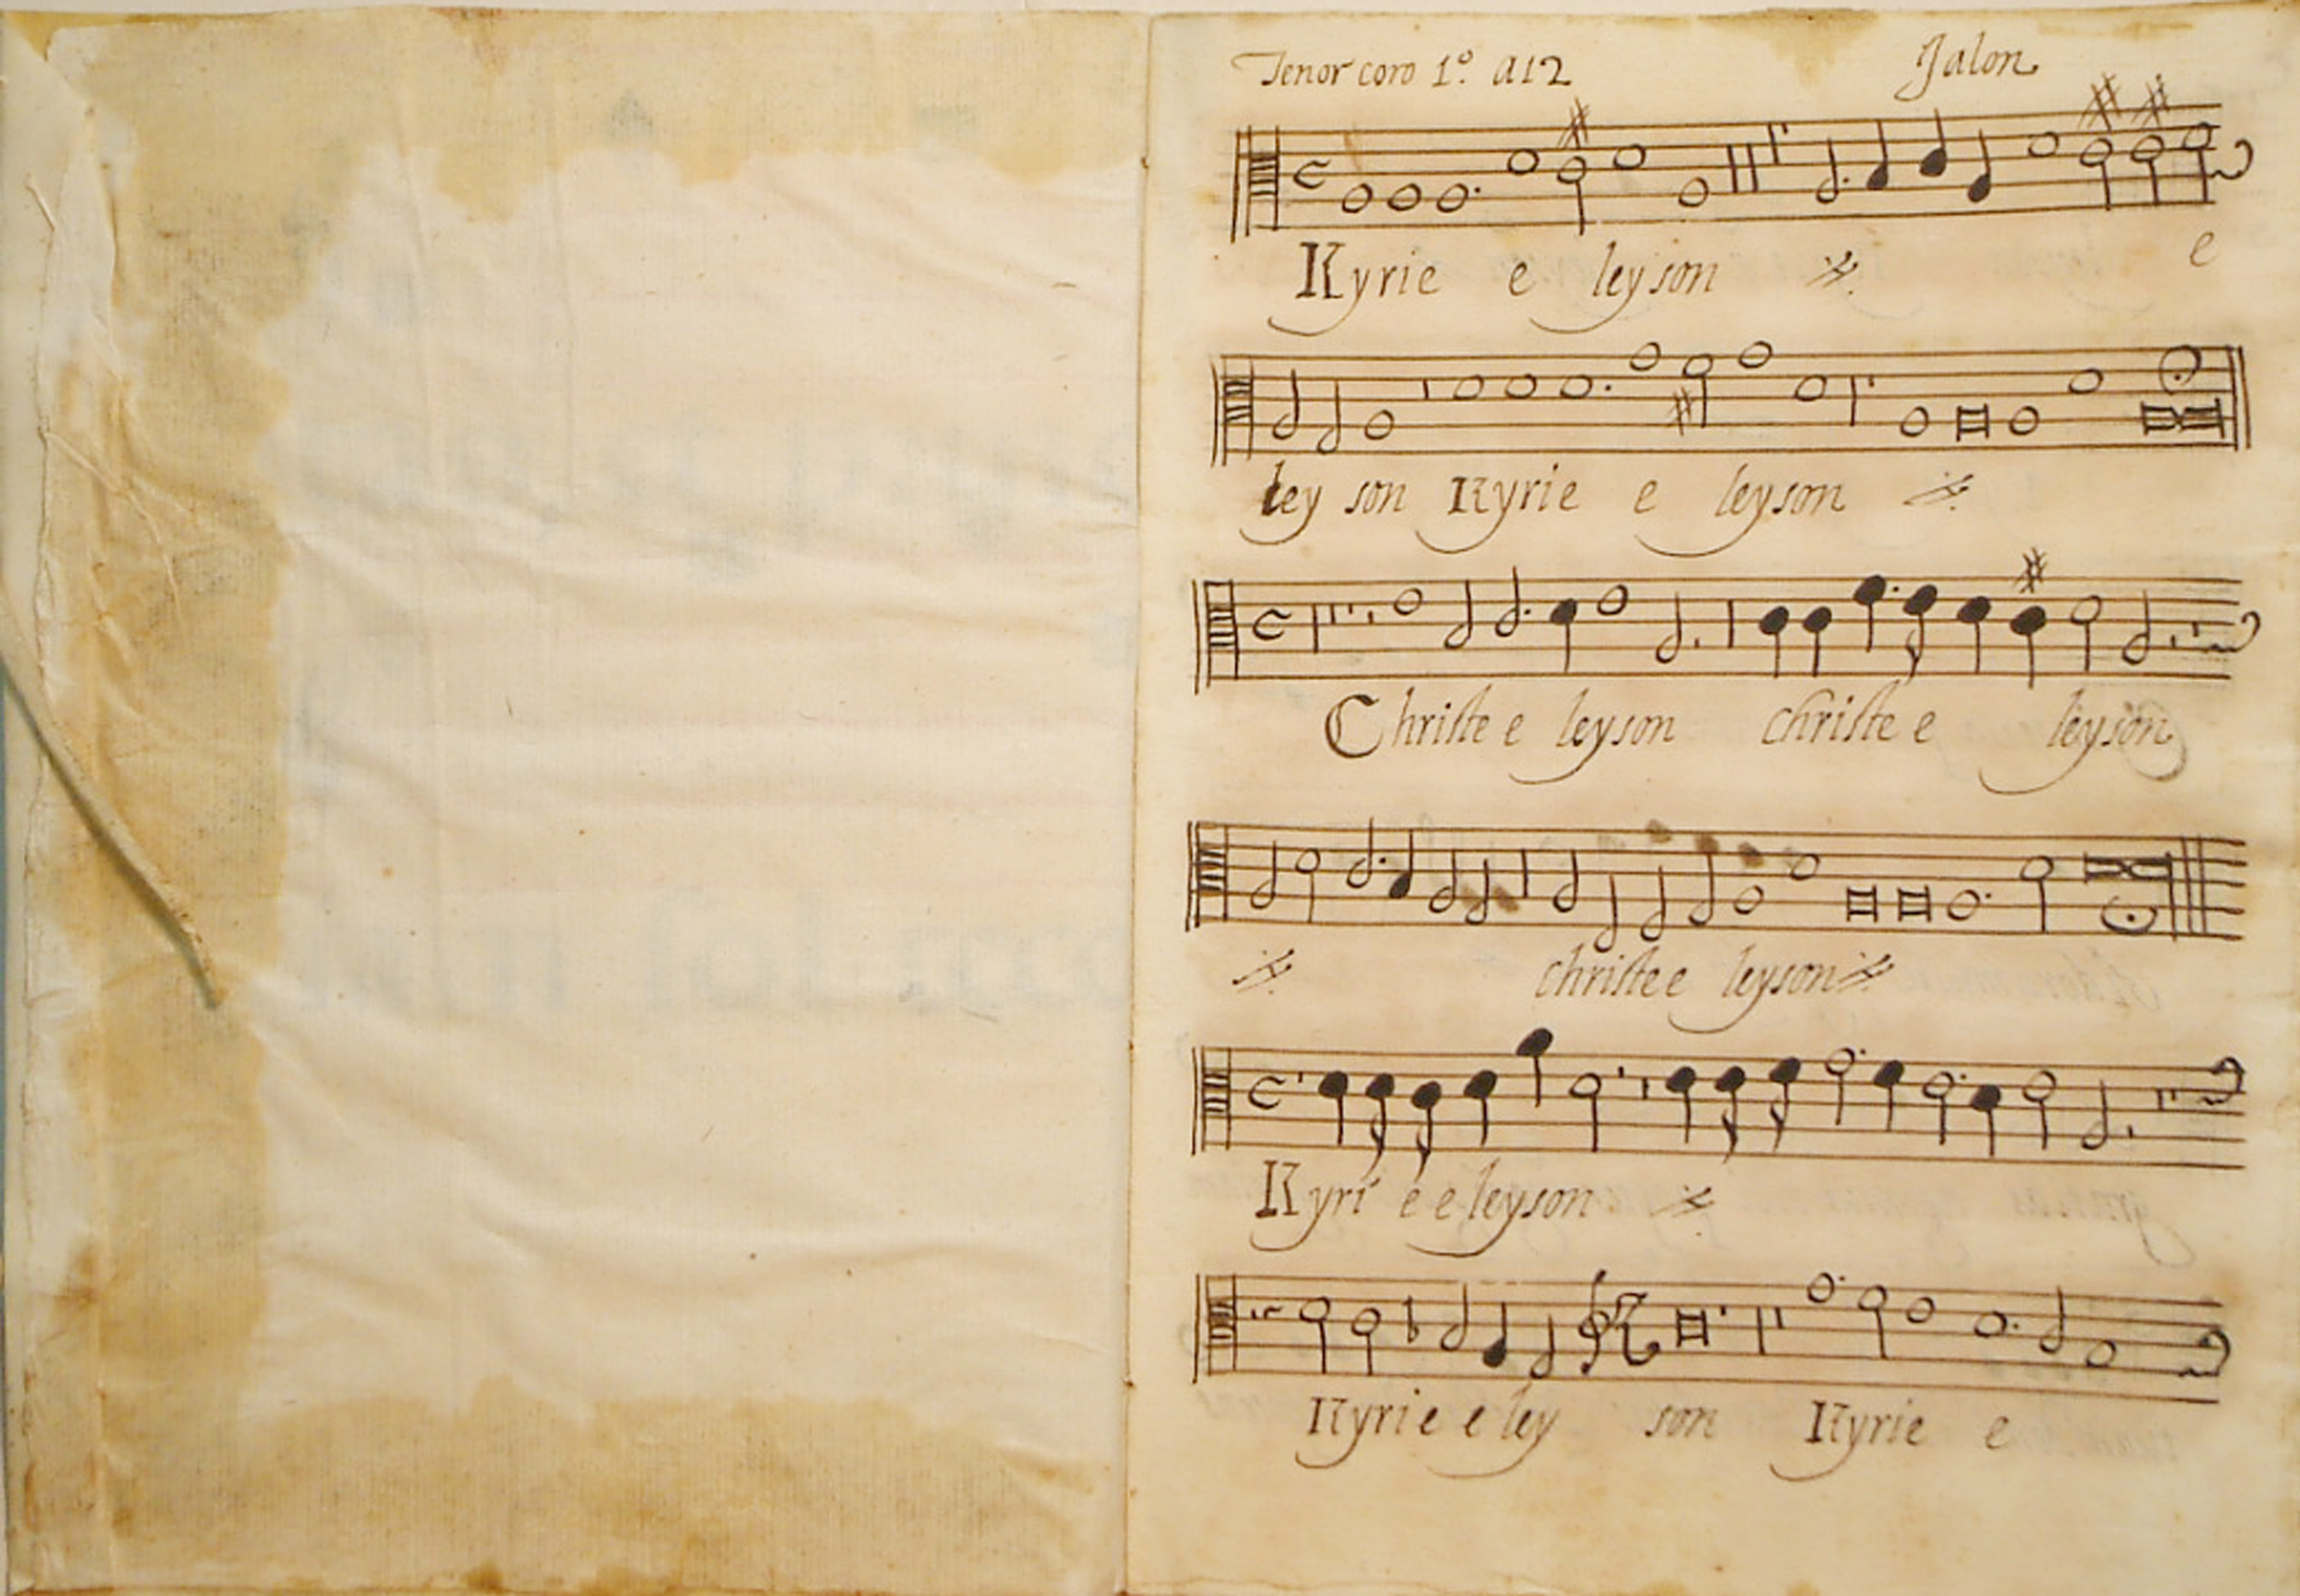 Tenor coro 1º. a12 Jalon
Kyrie e leyson e
ley son Kyrie e leyson
Christe e leyson christe e leyson
christe e leyson
Kyri e e leyson
Kyrie e ley son Kyrie e